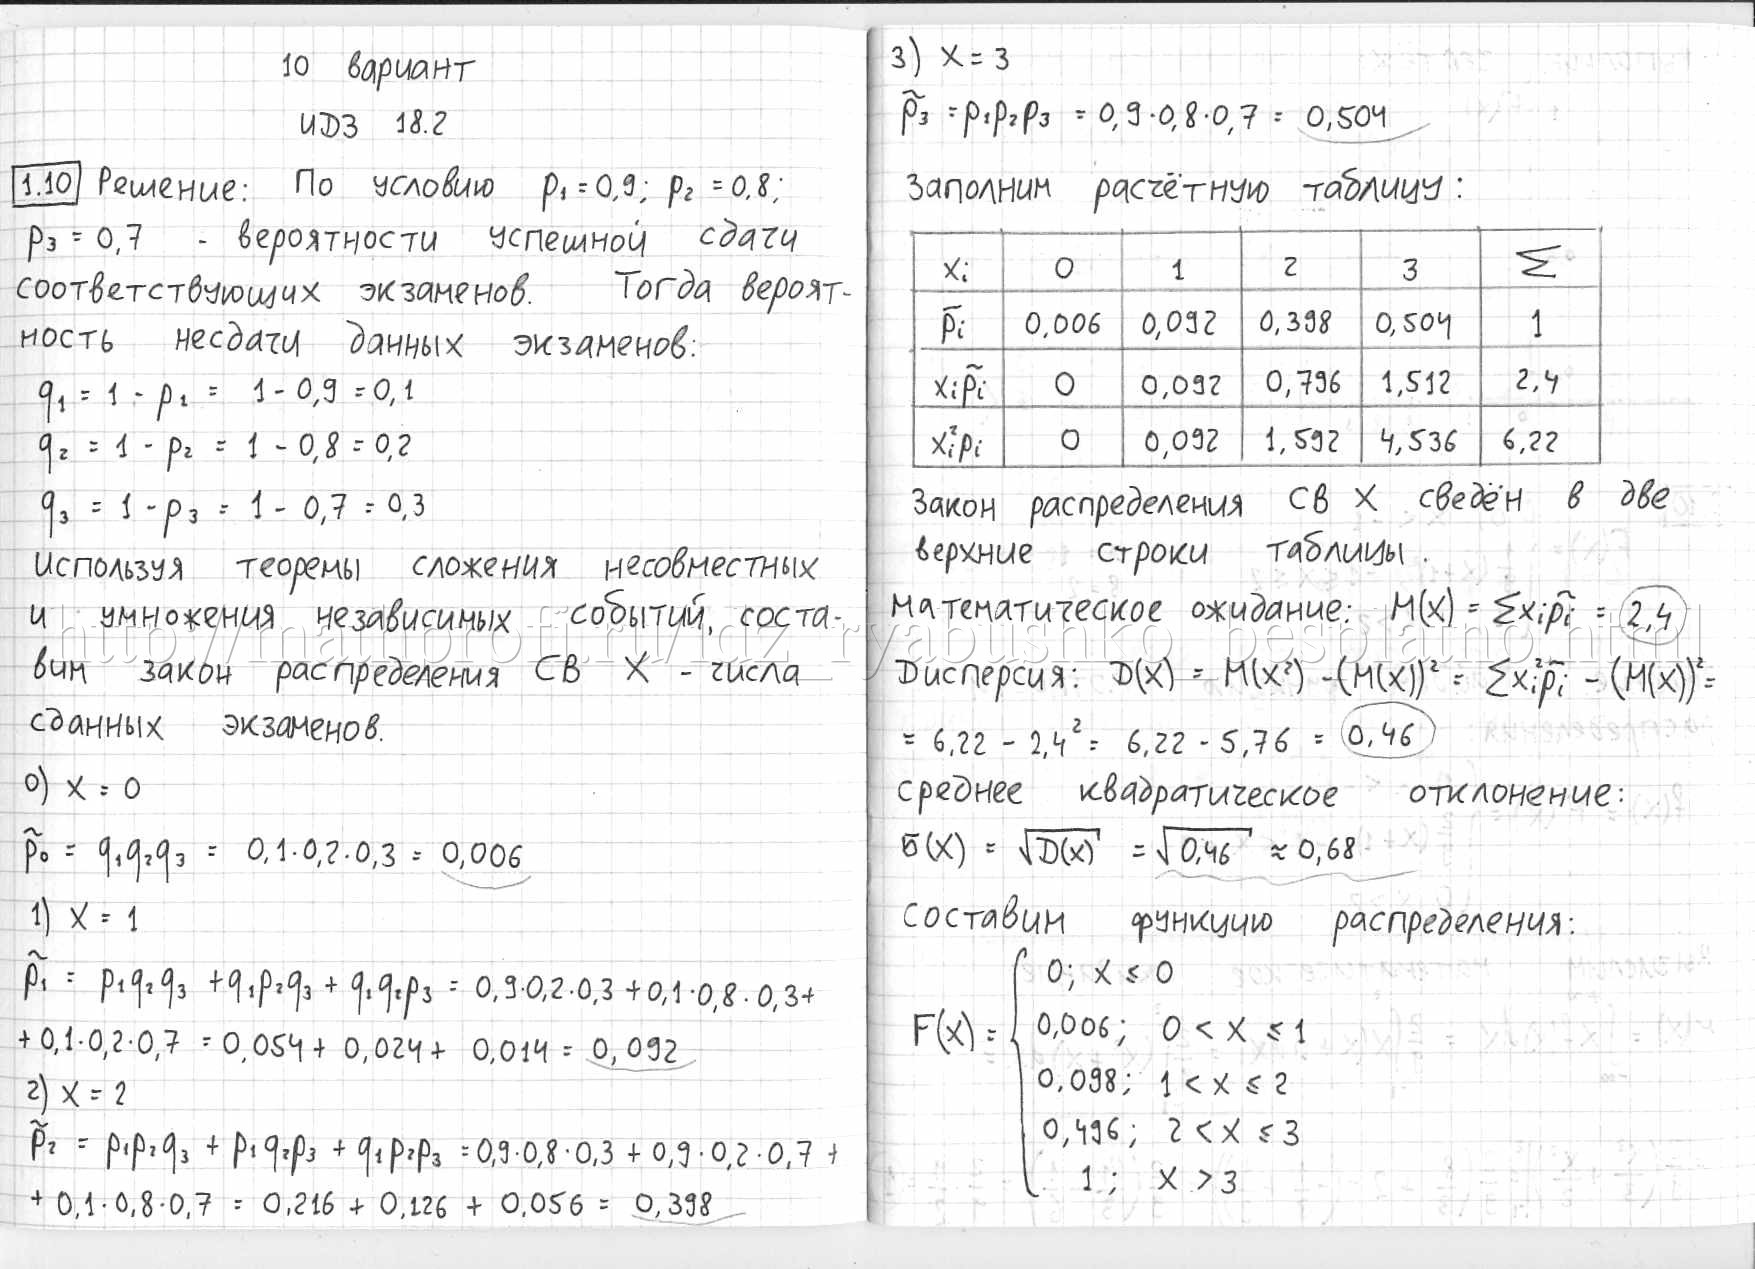 10 вариант
ИДЗ 18.2
1.10 Решение: По условию p₁ = 0,9; p₂ = 0,8;
p₃ = 0,7 - вероятности успешной сдачи
соответствующих экзаменов. Тогда вероят-
ность несдачи данных экзаменов:
q₁ = 1 - p₁ = 1 - 0,9 = 0,1
q₂ = 1 - p₂ = 1 - 0,8 = 0,2
q₃ = 1 - p₃ = 1 - 0,7 = 0,3
Используя теоремы сложения несовместных
и умножения независимых событий, соста-
вим закон распределения СВ X - числа
сданных экзаменов.
0) X = 0
p̃₀ = q₁q₂q₃ = 0,1·0,2·0,3 = 0,006
1) X = 1
p̃₁ = p₁q₂q₃ + q₁p₂q₃ + q₁q₂p₃ = 0,9·0,2·0,3 + 0,1·0,8·0,3 +
+ 0,1·0,2·0,7 = 0,054 + 0,024 + 0,014 = 0,092
2) X = 2
p̃₂ = p₁p₂q₃ + p₁q₂p₃ + q₁p₂p₃ = 0,9·0,8·0,3 + 0,9·0,2·0,7 +
+ 0,1·0,8·0,7 = 0,216 + 0,126 + 0,056 = 0,398
3) X = 3
p̃₃ = p₁p₂p₃ = 0,9·0,8·0,7 = 0,504
Заполним расчётную таблицу:
xᵢ 0 1 2 3 Σ
p̃ᵢ 0,006 0,092 0,398 0,504 1
xᵢp̃ᵢ 0 0,092 0,796 1,512 2,4
xᵢ²pᵢ 0 0,092 1,592 4,536 6,22
Закон распределения СВ X сведён в две
верхние строки таблицы.
Математическое ожидание: M(X) = Σxᵢp̃ᵢ = 2,4
Дисперсия: D(X) = M(X²) - (M(X))² = Σxᵢ²p̃ᵢ - (M(X))² =
= 6,22 - 2,4² = 6,22 - 5,76 = 0,46
среднее квадратическое отклонение:
σ(X) = √D(X) = √0,46 ≈ 0,68
Составим функцию распределения:
0; x ≤ 0
F(x) = { 0,006; 0 < x ≤ 1
0,098; 1 < x ≤ 2
0,496; 2 < x ≤ 3
1; x > 3